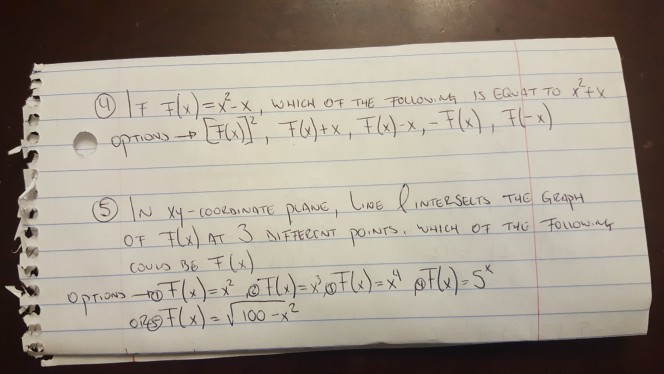 ④ IF F(x) = x² - x, WHICH OF THE FOLLOWING IS EQUAT TO x² + x
OPTIONS → [F(x)]², F(x)+x, F(x)-x, -F(x), F(-x)
⑤ IN XY-COORDINATE PLANE, LINE l INTERSECTS THE GRAPH
OF F(x) AT 3 DIFFERENT POINTS. WHICH OF THE FOLLOWING
COULD BE F(x)
OPTIONS → ① F(x) = x² ② F(x) = x³ ③ F(x) = x⁴ ④ F(x) = 5ˣ
OR ⑤ F(x) = √(100 - x²)